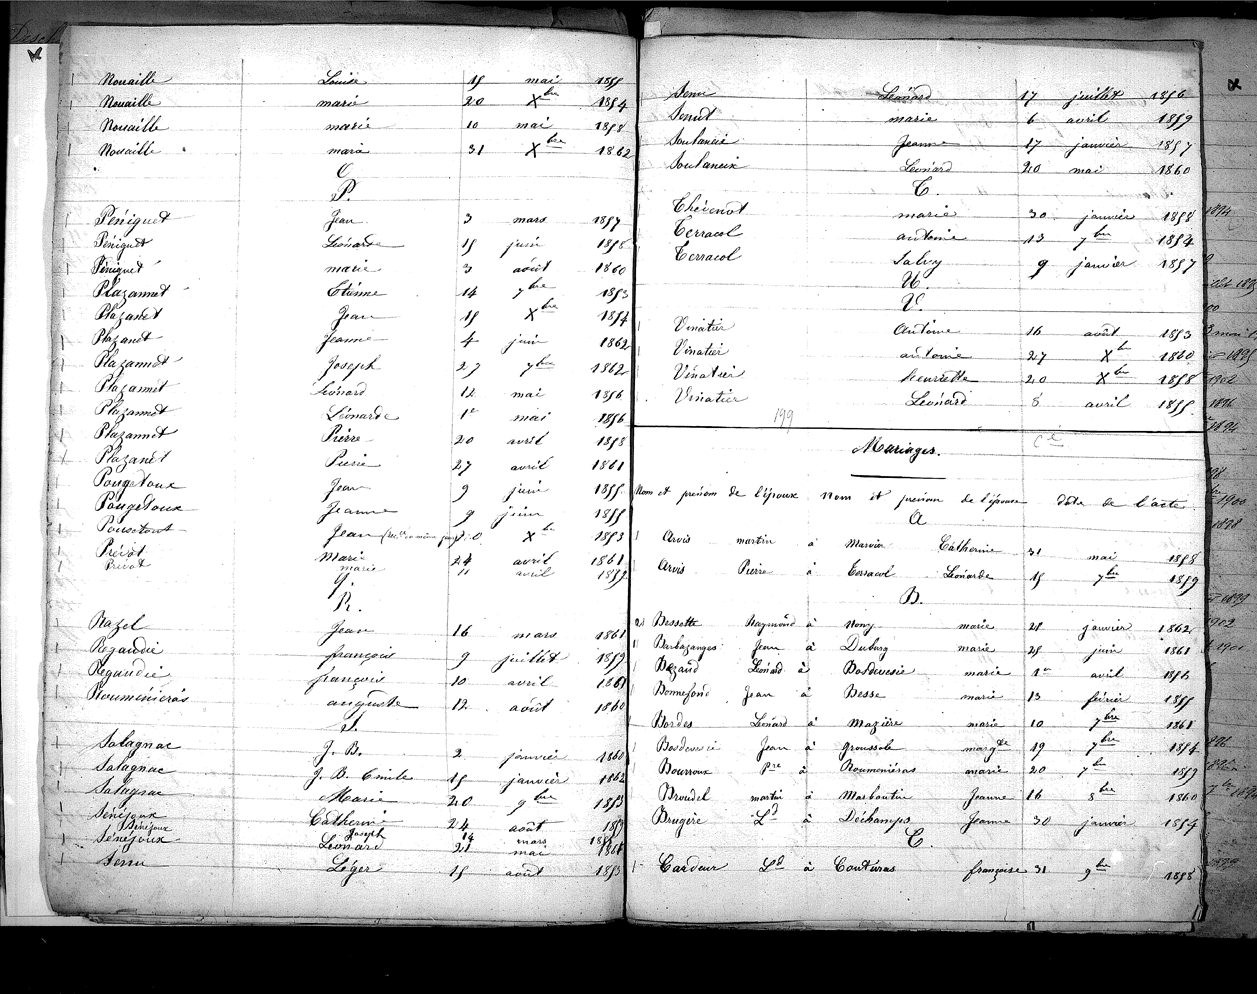 Nouaille Louise 15 mai 1855
Nouaille marie 20 Xbre 1854
Nouaille marie 10 mai 1858
Nouaille marie 31 Xbre 1862
O
P.
Péniguet Jean 3 mars 1857
Péniguet Léonarde 15 juin 1858
Péniguet marie 3 août 1860
Plazannet Etienne 14 7bre 1853
Plazanet Jean 15 Xbre 1854
Plazanet Jeanne 4 juin 1862
Plazannet Joseph 27 7bre 1862
Plazannet Léonard 12 mai 1856
Plazannet Léonarde 1er mai 1856
Plazannet Pierre 20 avril 1858
Plazanet Pierre 27 avril 1861
Pougetoux Jean 9 juin 1855
Pougetoux Jeanne 9 juin 1855
Jean 10 Xbre 1853
Prévot Marie 24 avril 1861
Prévot marie 11 avril 1859
Q.
R.
Razel Jean 16 mars 1861
Regaudie françois 9 juillet 1859
Regaudie françois 10 avril 1861
Rouméniéras auguste 12 août 1860
S.
Salagnac J. B. 2 janvier 1860
Salagnac J. B. Emile 15 janvier 1862
Salagnac Marie 20 9bre 1853
Sénéjoux Catherine 24 août
Sénéjoux Joseph 14 mars
Sénéjoux Léonard 21 mai
Senu Léger 15 août 1853
Senu Léonard 17 juillet 1856
Senut marie 6 avril 1859
Jeanne 17 janvier 1857
Soulaneix Léonard 20 mai 1860
T.
Thévenot marie 30 janvier 1858
Terracol antoine 13 7bre 1854
Terracol Salvy 9 janvier 1857
U.
V.
Vinatier Antoine 16 août 1853
Vinatier antoine 27 Xbre 1860
Vinatier henriette 20 Xbre 1858
Vinatier Léonard 8 avril 1855
199
Mariages.
Nom et prénom de l'époux Nom et prénom de l'épouse Date de l'acte
A
Arvis martin à Marvier Catherine 31 mai 1858
Arvis Pierre à Terracol Léonarde 15 7bre 1859
B.
Bessette Raymond à Nony marie 28 janvier 1862
Barbazanges Jean à Dubarg marie 25 juin 1861
Bezaud Léonard à Bosdevesie marie 1er avril 1856
Bonnefond Jean à Besse marie 13 février 1855
Bordes Léonard à Mazière marie 10 7bre 1861
Bosdevesie Jean à groussole margte 19 7bre 1854
Bourroux Pre à Rouméniéras marie 20 7bre 1859
Broudel martin à Masboutin Jeanne 16 8bre 1860
Brugère Ld à Déchamps Jeanne 30 janvier 1854
C.
Cardeur Ld à Couturas françoise 31 9bre 1858